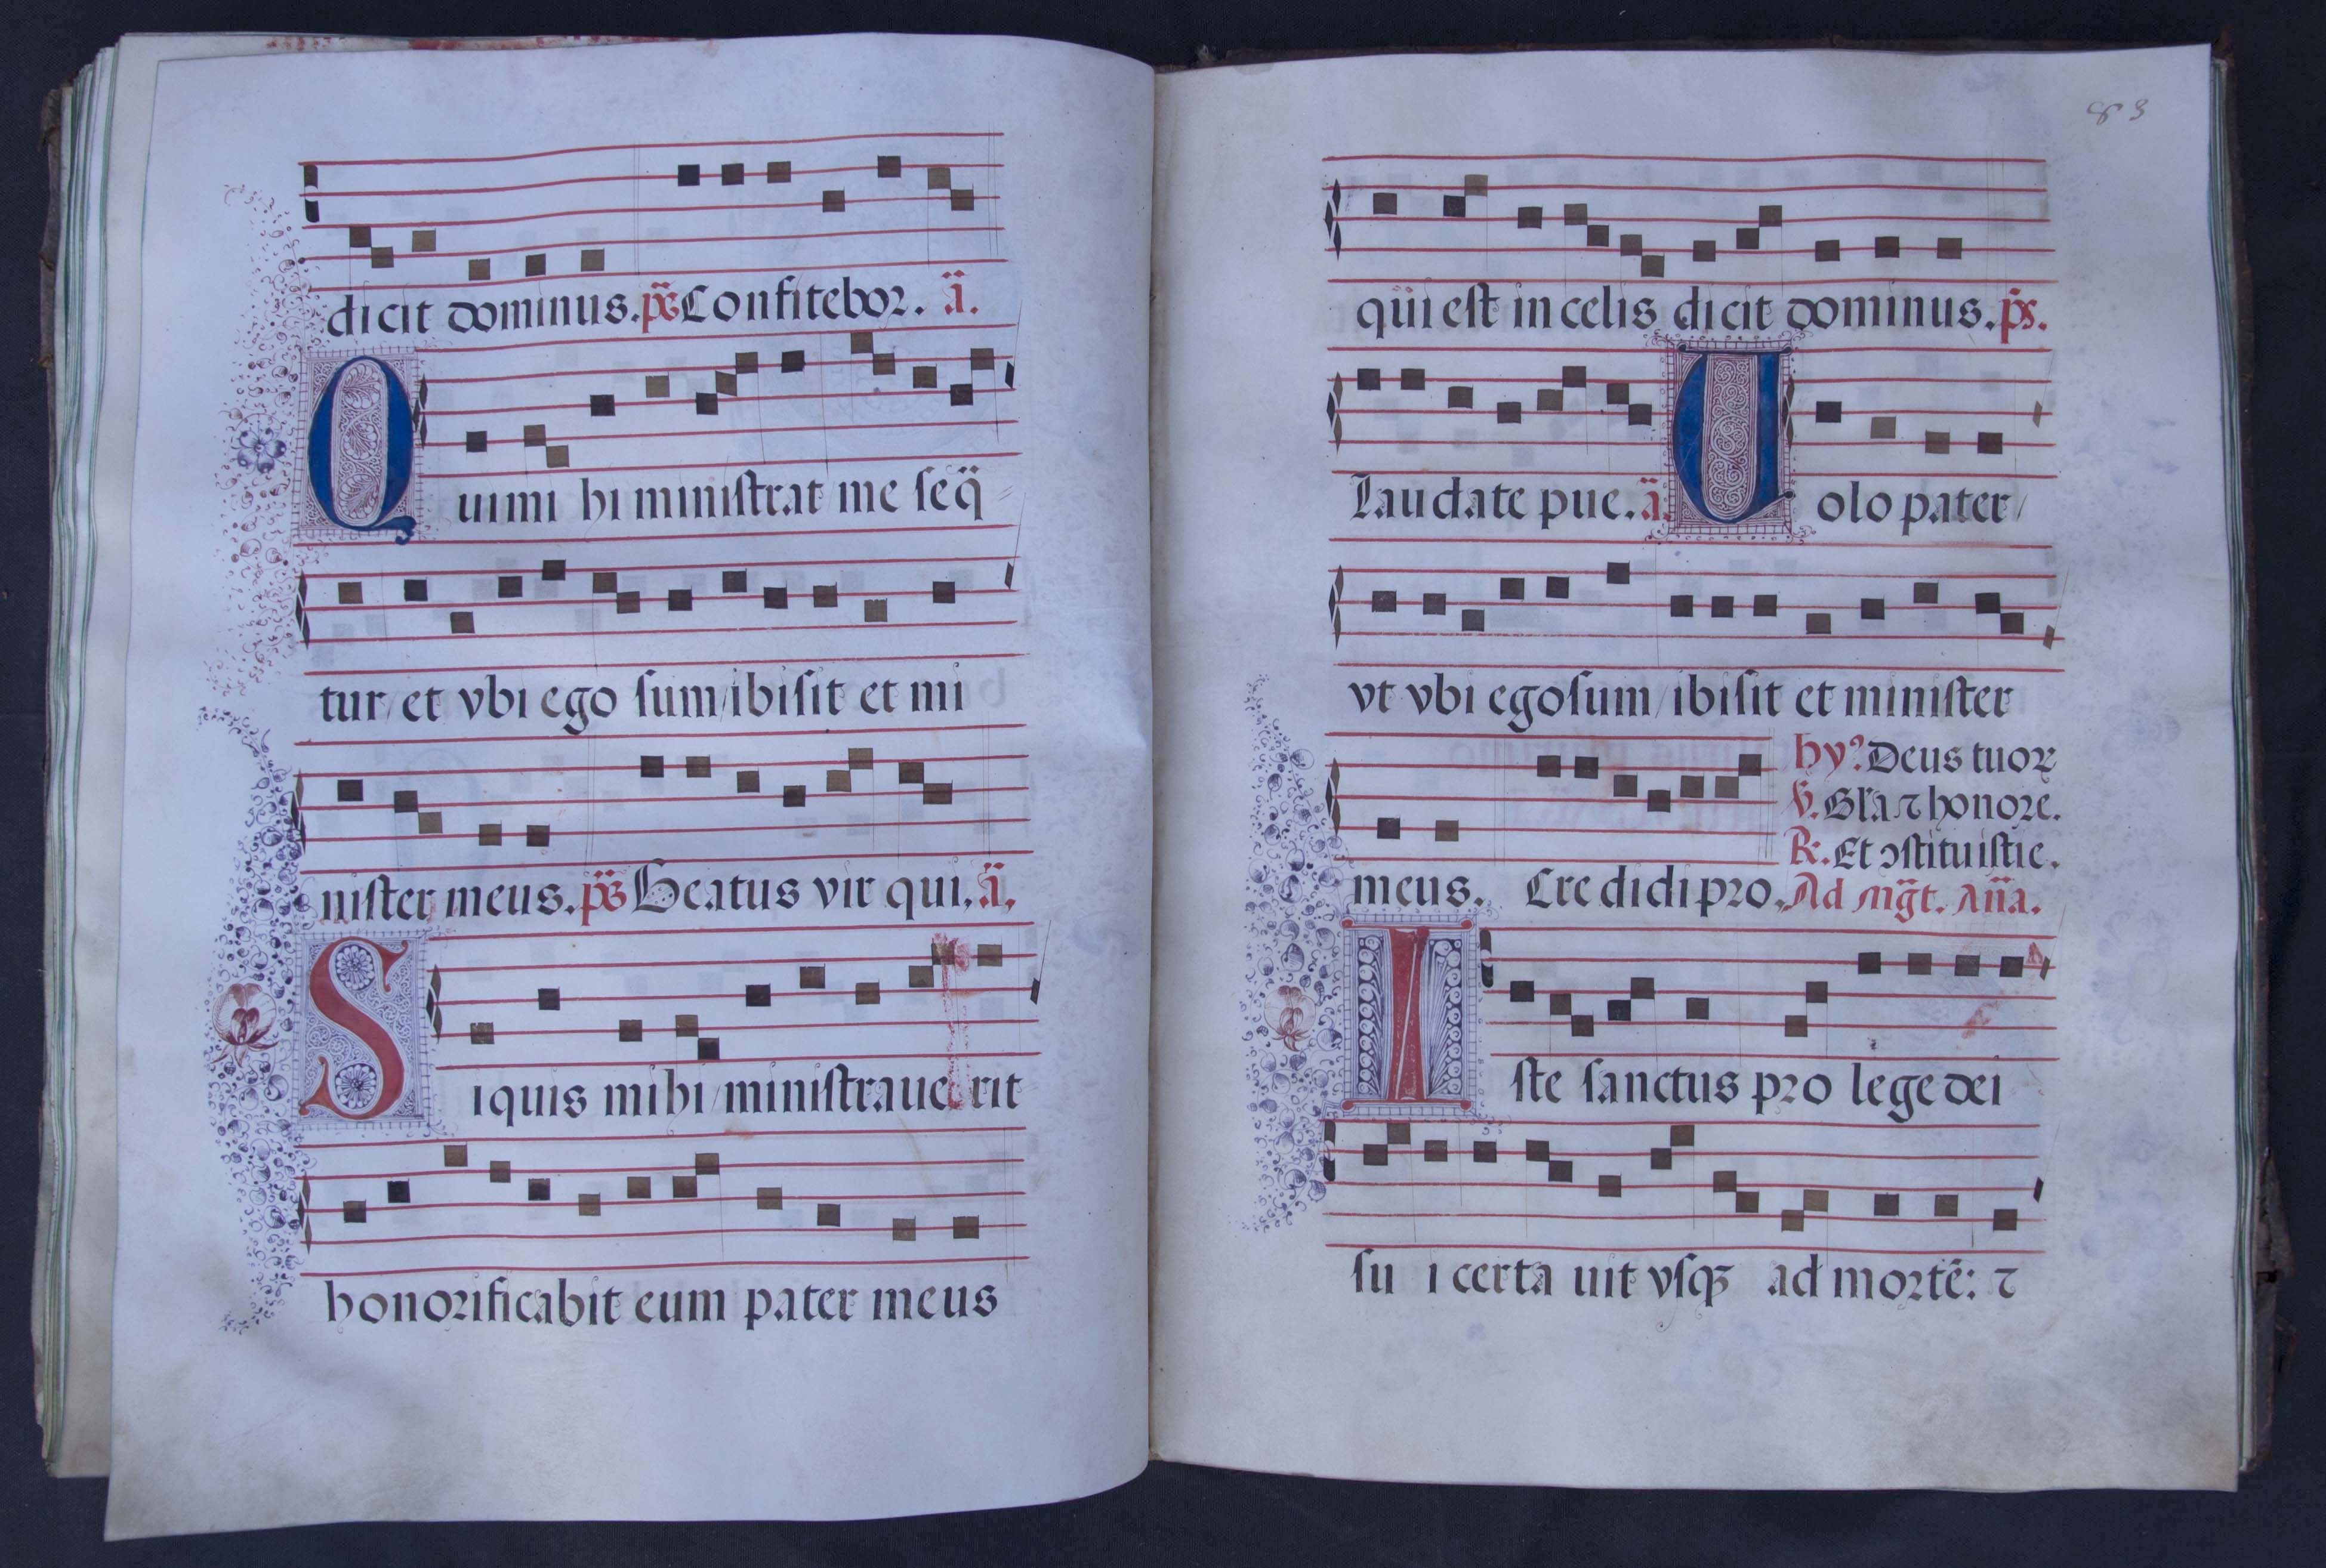 dicit dominus. ps̈ Confitebor. ä.
Qui mi hi ministrat me seq̈
tur et vbi ego sum ibi sit et mi
nister meus. ps̈ Beatus vir qui. ä.
Si quis mihi ministraue rit
honorificabit eum pater meus
83
qui est in celis dicit dominus. ps.
Laudate pue. ä. Uolo pater
vt vbi ego sum ibi sit et minister
hy? Deus tuoꝝ
℣. Gl'a ⁊ honore.
℟. Et ↄstituistie.
meus. Credidi pro. Ad mg̈t. an̈a.
Iste sanctus pro lege dei
su i certa uit vsqꝫ ad mortē: ⁊